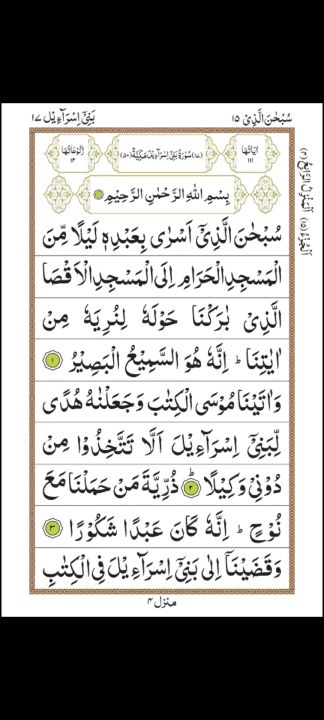 سُبْحٰنَ الَّذِیْ ١٥
بَنِیْٓ اِسْرَآءِیْل ١٧
اٰیَاتُهَا ١١١
(١٧) سُوْرَةُ بَنِیْٓ اِسْرَآءِیْلَ مَكِّیَّةٌ (٥٠)
رُكُوْعَاتُهَا ١٢
بِسْمِ اللّٰهِ الرَّحْمٰنِ الرَّحِیْمِ
سُبْحٰنَ الَّذِیْٓ اَسْرٰی بِعَبْدِهٖ لَیْلًا مِّنَ
الْمَسْجِدِ الْحَرَامِ اِلَی الْمَسْجِدِ الْاَقْصَا
الَّذِیْ بٰرَكْنَا حَوْلَهٗ لِنُرِیَهٗ مِنْ
اٰیٰتِنَا ؕ اِنَّهٗ هُوَ السَّمِیْعُ الْبَصِیْرُ ١
وَاٰتَیْنَا مُوْسَی الْكِتٰبَ وَجَعَلْنٰهُ هُدًی
لِّبَنِیْٓ اِسْرَآءِیْلَ اَلَّا تَتَّخِذُوْا مِنْ
دُوْنِیْ وَكِیْلًا ؕ ٢ ذُرِّیَّةَ مَنْ حَمَلْنَا مَعَ
نُوْحٍ ؕ اِنَّهٗ كَانَ عَبْدًا شَكُوْرًا ٣
وَقَضَیْنَآ اِلٰی بَنِیْٓ اِسْرَآءِیْلَ فِی الْكِتٰبِ
منزل ٤
اَلْجُزْءُ (١٥) اَلْمَنْزِلُ الرَّابِعُ (٤)